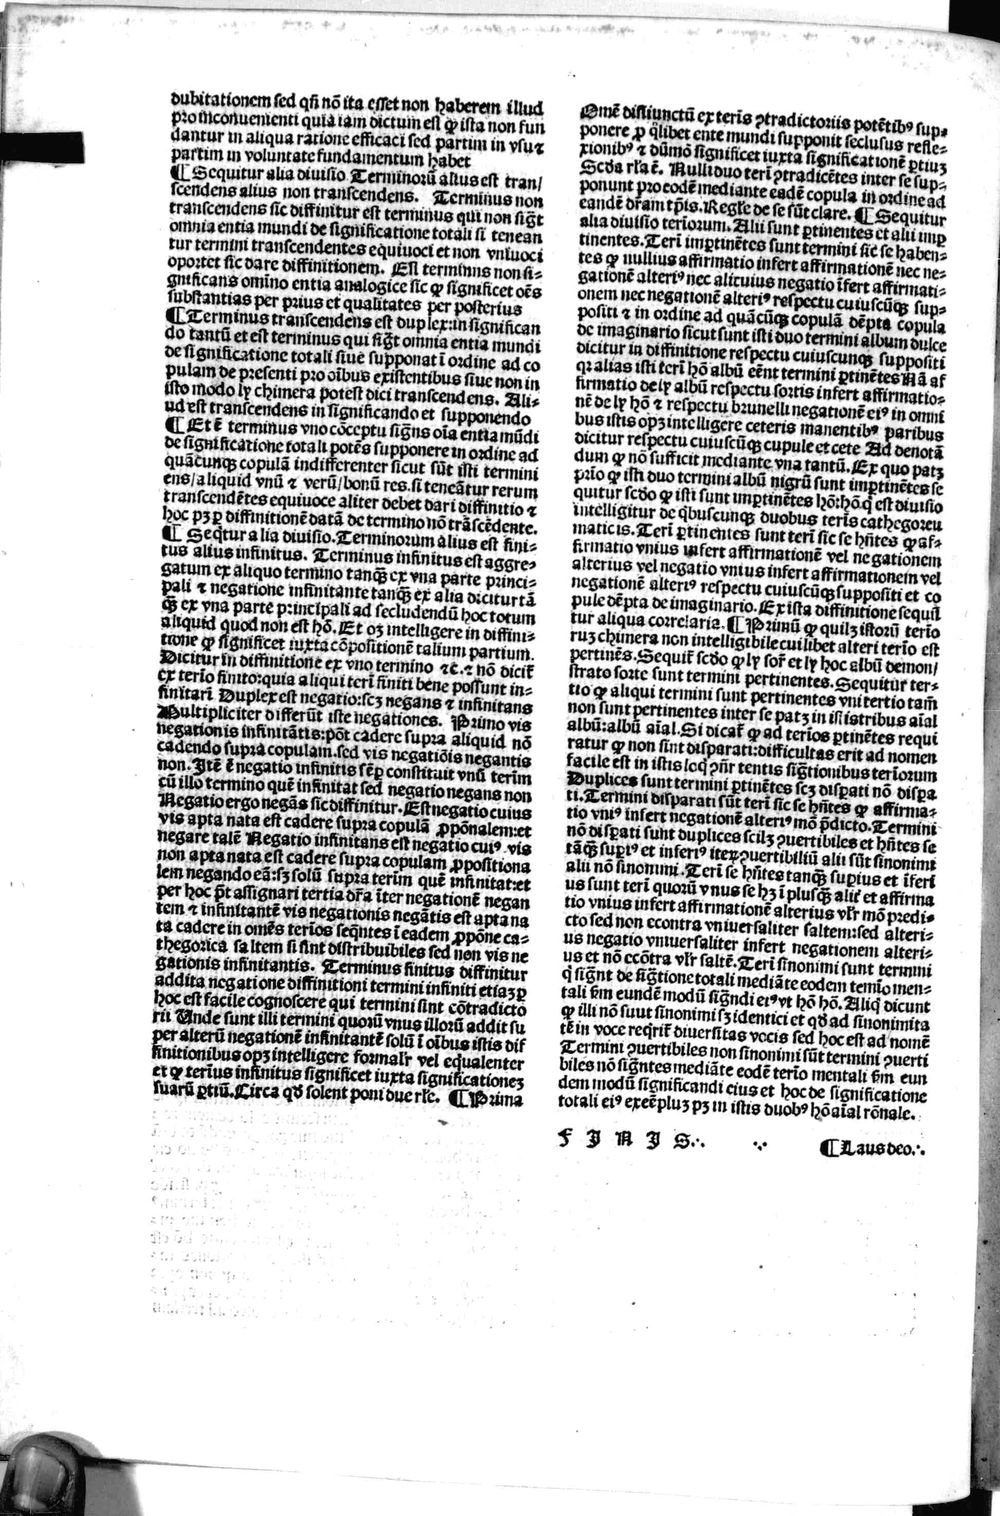 dubitationem sed qñ nõ ita esset non haberem illud
pro inconuenienti quia iam dictum est ꝙ ista non fun
dantur in aliqua ratione efficaci sed partim in vsu ⁊
partim in voluntate fundamentum habet
¶ Sequitur alia diuisio Terminorũ alius est tran/
scendens alius non transcendens. Terminus non
transcendens sic diffinitur est terminus qui non sigt̃
omnia entia mundi de significatione totali si tenean
tur termini transcendentes equiuoci et non vniuoci
oportet sic dare diffinitionem. Est terminus non si-
gnificans omĩno entia analogice sic ꝙ significet oẽs
substantias per prius et qualitates per posterius
¶ Terminus transcendens est duplex: in significan
do tantũ et est terminus qui sigt̃ omnia entia mundi
de significatione totali siue supponat ĩ ordine ad co
pulam de presenti pro oĩbus existentibus siue non in
isto modo ly chimera potest dici transcendens. Ali-
ud est transcendens in significando et supponendo
¶ Et ẽ terminus vno cõceptu signs oĩa entia mũdi
de significatione totali potẽs supponere in ordine ad
quãcunqꝫ copulã indifferenter sicut sũt isti termini
ens/aliquid vnũ ⁊ verũ/bonũ res. si teneãtur rerum
transcendẽtes equiuoce aliter debet dari diffinitio ⁊
hoc pꝫ ꝑ diffinitionẽ datã de termino nõ trãscẽdente.
¶ Seqt̃ur alia diuisio. Terminorum alius est fini-
tus alius infinitus. Terminus infinitus est aggre-
gatum ex aliquo termino tanqꝫ ex vna parte princi-
pali ⁊ negatione infinitante tanqꝫ ex alia dicitur tã
qꝫ ex vna parte principali ad secludendũ hoc totum
aliquid quod non est hõ. Et oꝫ intelligere in diffini-
tione ꝙ significet iuxta cõpositionẽ talium partium.
Dicitur in diffinitione ex vno termino ⁊c. ⁊ nõ dicit̃
ex teriõ finito: quia aliqui terĩ finiti bene possunt in-
finitari Duplex est negatio: scꝫ negans ⁊ infinitans
Multipliciter differũt iste negationes. Primo vis
negationis infinitãtis: põt cadere supra aliquid nõ
cadendo supra copulam. sed vis negatiõis negantis
non. Itẽ ẽ negatio infinitis sẽp constituit vnũ terim̃
cũ illo termino quẽ infinitat sed negatio negans non
Negatio ergo negãs sic diffinitur. Est negatio cuius
vis apta nata est cadere supra copulã ꝓpõnalem: et
negare talẽ Negatio infinitans est negatio cuiꝰ vis
non apta nata est cadere supra copulam ꝓpositiona
lem negando eã: sꝫ solũ supra terim̃ quẽ infinitat: et
per hoc pt̃ assignari tertia dr̃a ĩter negationẽ negan
tem ⁊ infinitantẽ vis negationis negãtis est apta na
ta cadere in omẽs teriõs seqñtes ĩ eadem ꝓpõne ca-
thegorica saltem si sint distribuibiles sed non vis ne
gationis infinitantis. Terminus finitus diffinitur
addita negatione diffinitioni termini infiniti etiaꝫ ꝑ
hoc est facile cognoscere qui termini sint cõtradicto
rii Unde sunt illi termini quorũ vnus illorũ addit su
per alterũ negationẽ infinitantẽ solũ ĩ oĩbus istis dif
finitionibus opꝫ intelligere formalr̃ vel equalenter
et ꝙ teriũs infinitus significet iuxta significationeꝫ
suarũ ꝑtiũ. Circa qđ solent poni due rl̃e. ¶ Prima
Omẽ disiunctũ ex teriis ꝯtradictoriis potẽtibꝰ sup-
ponere ꝓ ql̃ibet ente mundi supponit seclusus refle-
xionibꝰ ⁊ dũmõ significet iuxta significationẽ ꝑtiuꝫ
Scđa rl̃a ẽ. Nulli duo terĩ ꝯtradicẽtes inter se sup-
ponunt pro eodẽ mediante eadẽ copula in ordine ad
eandẽ dr̃am tp̃is. Regl̃e de se sũt clare. ¶ Sequitur
alia diuisio teriorum. Alii sunt ꝑtinentes et alii imꝑ
tinentes. Terĩ imꝑtinẽtes sunt termini sic se haben-
tes ꝙ nullius affirmatio infert affirmationẽ nec ne-
gationẽ alteriꝰ nec alicuius negatio ĩfert affirmati-
onem nec negationẽ alteriꝰ respectu cuiuscũqꝫ sup-
positi ⁊ in ordine ad quãcũqꝫ copulã dẽpta copula
de imaginario sicut sunt isti duo termini album dulce
dicitur in diffinitione respectu cuiuscunqꝫ suppositi
qꝛ alias isti terĩ hõ albũ eẽnt termini ꝑtinẽtes Nã af
firmatio de ly albũ respectu sortis infert affirmatio-
nẽ de ly hõ ⁊ respectu brunelli negationẽ eiꝰ in omni
bus istis opꝫ intelligere ceteris manentibꝰ paribus
dicitur respectu cuiuscũqꝫ cupule et cete Ad denotã
dum ꝙ nõ sufficit mediante vna tantũ. Ex quo patꝫ
prio ꝙ isti duo termini albũ nigrũ sunt imꝑtinẽtes se
quitur scđo ꝙ isti sunt imꝑtinẽtes hõ: hõ. q̃ est diuisio
intelligitur de qb̃uscunqꝫ duobus teriis cathegoreu
maticis. Terĩ ꝑtinentes sunt terĩ sic se hñtes ꝙ af-
firmatio vnius infert affirmationẽ vel negationem
alterius vel negatio vnius infert affirmationem vel
negationẽ alteriꝰ respectu cuiuscũqꝫ suppositi et co
pule dẽpta de imaginario. Ex ista diffinitione sequũ
tur aliqua correlaria. ¶ Primũ ꝙ quilꝫ istorũ terio
ruꝫ chimera non intelligibile cuilibet alteri terio est
pertinẽs. Sequit̃ scđo ꝙ ly sort̃ et ly hoc albũ demon/
strato sorte sunt termini pertinentes. Sequitur ter-
tio ꝙ aliqui termini sunt pertinentes vni tertio tam̃
non sunt pertinentes inter se patꝫ in istis tribus aĩal
albũ: albũ aĩal. Si dicat̃ ꝙ ad terios ꝑtinẽtes requi
ratur ꝙ non sint disparati: difficultas erit ad nomen
facile est in istis loq̃ ꝯñr tentis sigt̃ionibus teriorum
Duplices sunt termini ꝑtinẽtes scꝫ disꝑati nõ dispa
ti. Termini disparati sũt terĩ sic se hñtes ꝙ affirma-
tio vniꝰ insert negationẽ alteriꝰ mõ p̃dicto. Termini
nõ disꝑati sunt duplices scilꝫ ꝯuertibiles et hñtes se
tãqꝫ supiꝰ et inferiꝰ iteꝝ ꝯuertibiliũ alii sũt sinonimi
alii nõ sinonimi. Terĩ se hñtes tanqꝫ superius et ĩferĩ
us sunt terĩ quorũ vnus se hꝫ ĩ plusqꝫ aliꝰ et affirma
tio vnius infert affirmationẽ alterius vlr̃ mõ predi-
cto sed non econtra vniuersaliter saltem: sed alteri-
us negatio vniuersaliter infert negationem alteri-
us et nõ ecõtra vlr̃ saltẽ. Terĩ sinonimi sunt termini
q̃ signt̃ de sigt̃ione totali mediãte eodem temio men-
tali fm̃ eundẽ modũ signdi eiꝰ vt hõ hõ. Aliq̃ dicunt
ꝙ illi nõ suut sinonimi sꝫ identici et qđ ad sinonimita
tẽ in voce reqrit̃ diuersitas vocis sed hoc est ad nomẽ
Termini ꝯuertibiles non sinonimi sũt termini ꝯuerti
biles nõ signtes mediãte eodẽ terio mentali fm̃ eun
dem modũ significandi eius et hoc de significatione
totali eiꝰ exẽpluꝫ pꝫ in istis duobꝰ hõ aĩal rõnale.
F I N I S ∴ ∵ ¶ Laus deo ∴